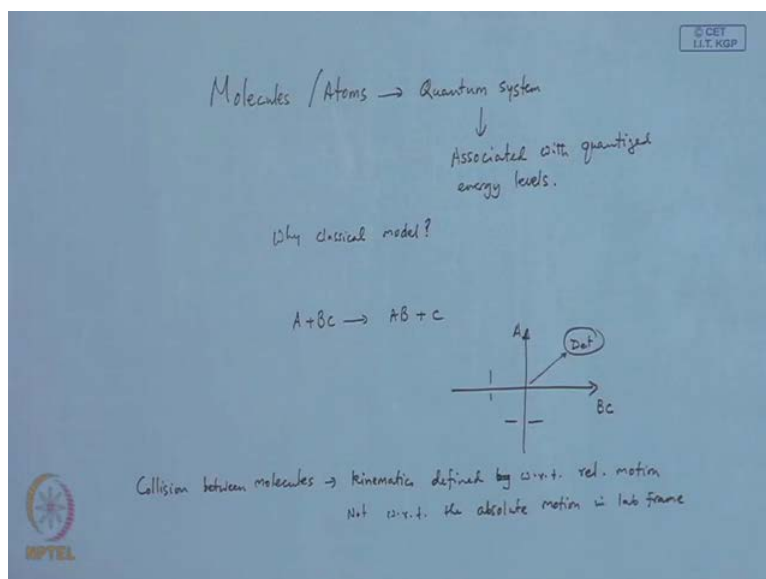 © CET
I.I.T. KGP
Molecules / Atoms → Quantum system
↓
Associated with quantized
energy levels.
Why classical model?
A + BC → AB + C
A
Det
BC
Collision between molecules → kinematics defined w.r.t. rel. motion
Not w.r.t. the absolute motion in lab frame
NPTEL